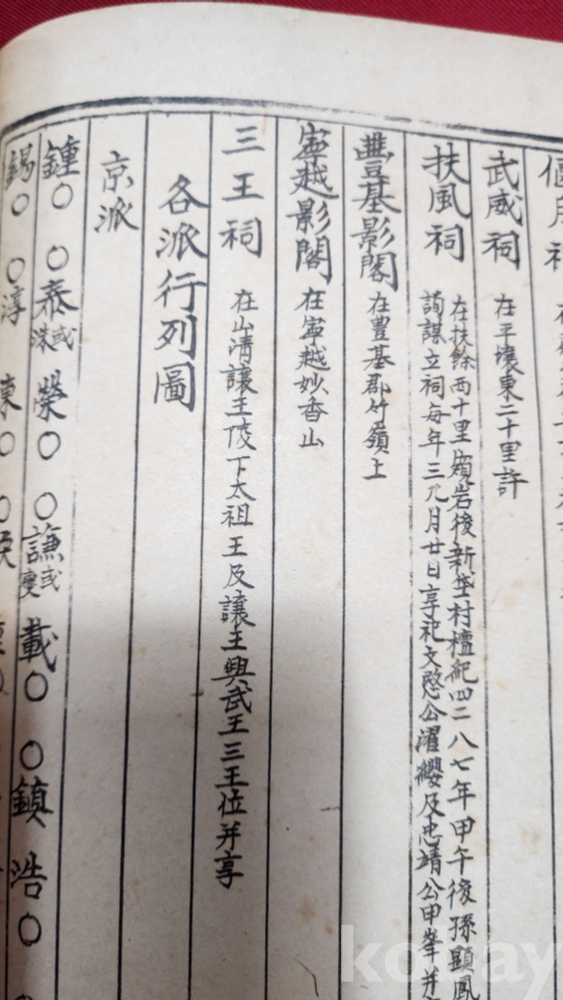 武威祠 在平壤東二十里許
扶風祠 在扶餘西十里 岩後新垈村檀紀四二八七年甲午後孫顯鳳
詢謀立祠每年三九月廿日享祀文愍公濯纓及忠靖公甲峯并
豐基影閣 在豊基郡竹嶺上
寧越影閣 在寧越妙香山
三王祠 在山淸讓王陵下太祖王及讓王興武王三王位并享
各派行列圖
京派
鍾〇 〇泰或洙 榮〇 〇謙或變 載〇 〇鎮 浩〇
錫〇 〇淳 東〇
kobay